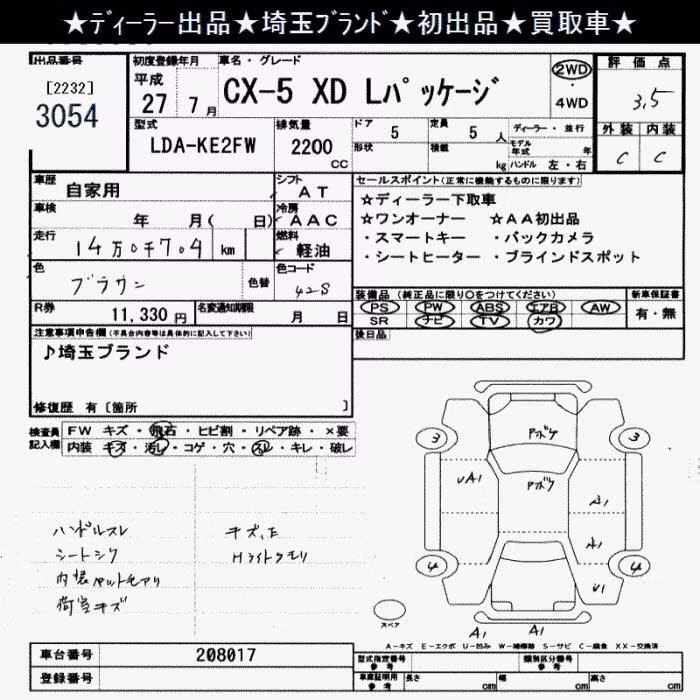 ★ディーラー出品★埼玉ブランド★初出品★買取車★
出品番号
[2232]
3054
初度登録年月
平成
27 7月
車名・グレード
CX-5 XD Lパッケージ
2WD
・
4WD
評価点
3,5
外装 内装
C C
型式
LDA-KE2FW
排気量
2200
CC
ドア 5
定員 5 人
形状
積載 kg
ディーラー・並行
モデル年式 年
ハンドル 左・右
車歴 自家用
シフト AT
車検 年 月( 日)
冷房 AAC
走行 14万0千704 km
燃料 軽油
色 ブラウン
色替
色コード 42S
R券 11,330円
名変通知期限 月 日
セールスポイント(正常に機能するものに限ります)
☆ディーラー下取車
☆ワンオーナー ☆AA初出品
・スマートキー ・バックカメラ
・シートヒーター ・ブラインドスポット
装備品 (純正品に限り○をつけてください)
PS PW ABS エアB AW
SR ナビ TV カワ
新車保証書
有・無
後日品
注意事項申告欄(不具合内容等は具体的に記入して下さい)
♪埼玉ブランド
修復歴 有〔箇所 〕
検査員
記入欄
FW キズ・飛石・ヒビ割・リペア跡・×要
内装 キズ・汚レ・コゲ・穴・スレ・キレ・破レ
ハンドルスレ
シートシワ
荷室キズ
Hライトクモリ
3 3
Aボケ
Aボケ
UA1
A1
A1
U1
4 4
スペア
A1 A1
A-キズ E-エクボ U-凹み W-補修跡 S-サビ C-腐食 XX-交換済
車台番号 208017
登録番号
型式指定番号
参考
類別区分番号
参考
車庫証明用
参考
長さ cm 幅 cm 高さ cm